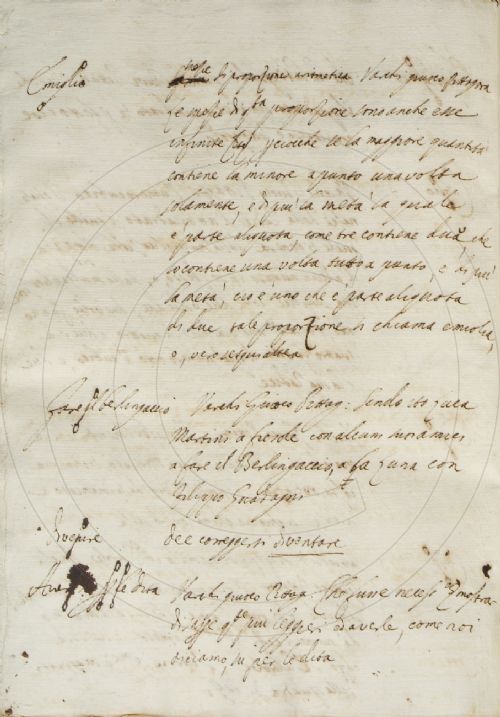 Emiglia
spezie di proporzione aritmetica Vardi giuoco Pittagora
le spezie di qta proporzione sono anche esse
infinite perciocchè se la maggiore quantità
contiene la minore apunto una volta
solamente, e di più la metà la quale
è parte aliquota come tre contiene dua, che
lo contiene una volta tutto a punto, e di più
la metà, cio è uno che è parte aliquota
di due tale proporzione si chiama emiolia,
o, vero sesquialtera
Fare il berlingaccio
Vardi Giuoco Pittag: sendo ito Luca
Martini a fiesole con alcuni suoi amici
a fare il Berlingaccio, a cena con
Filippo Guadagni
divenire
dee correggersi diventare
le dita
Vardi giuoco Pittag.
averle, come noi
diciamo, su per le dita